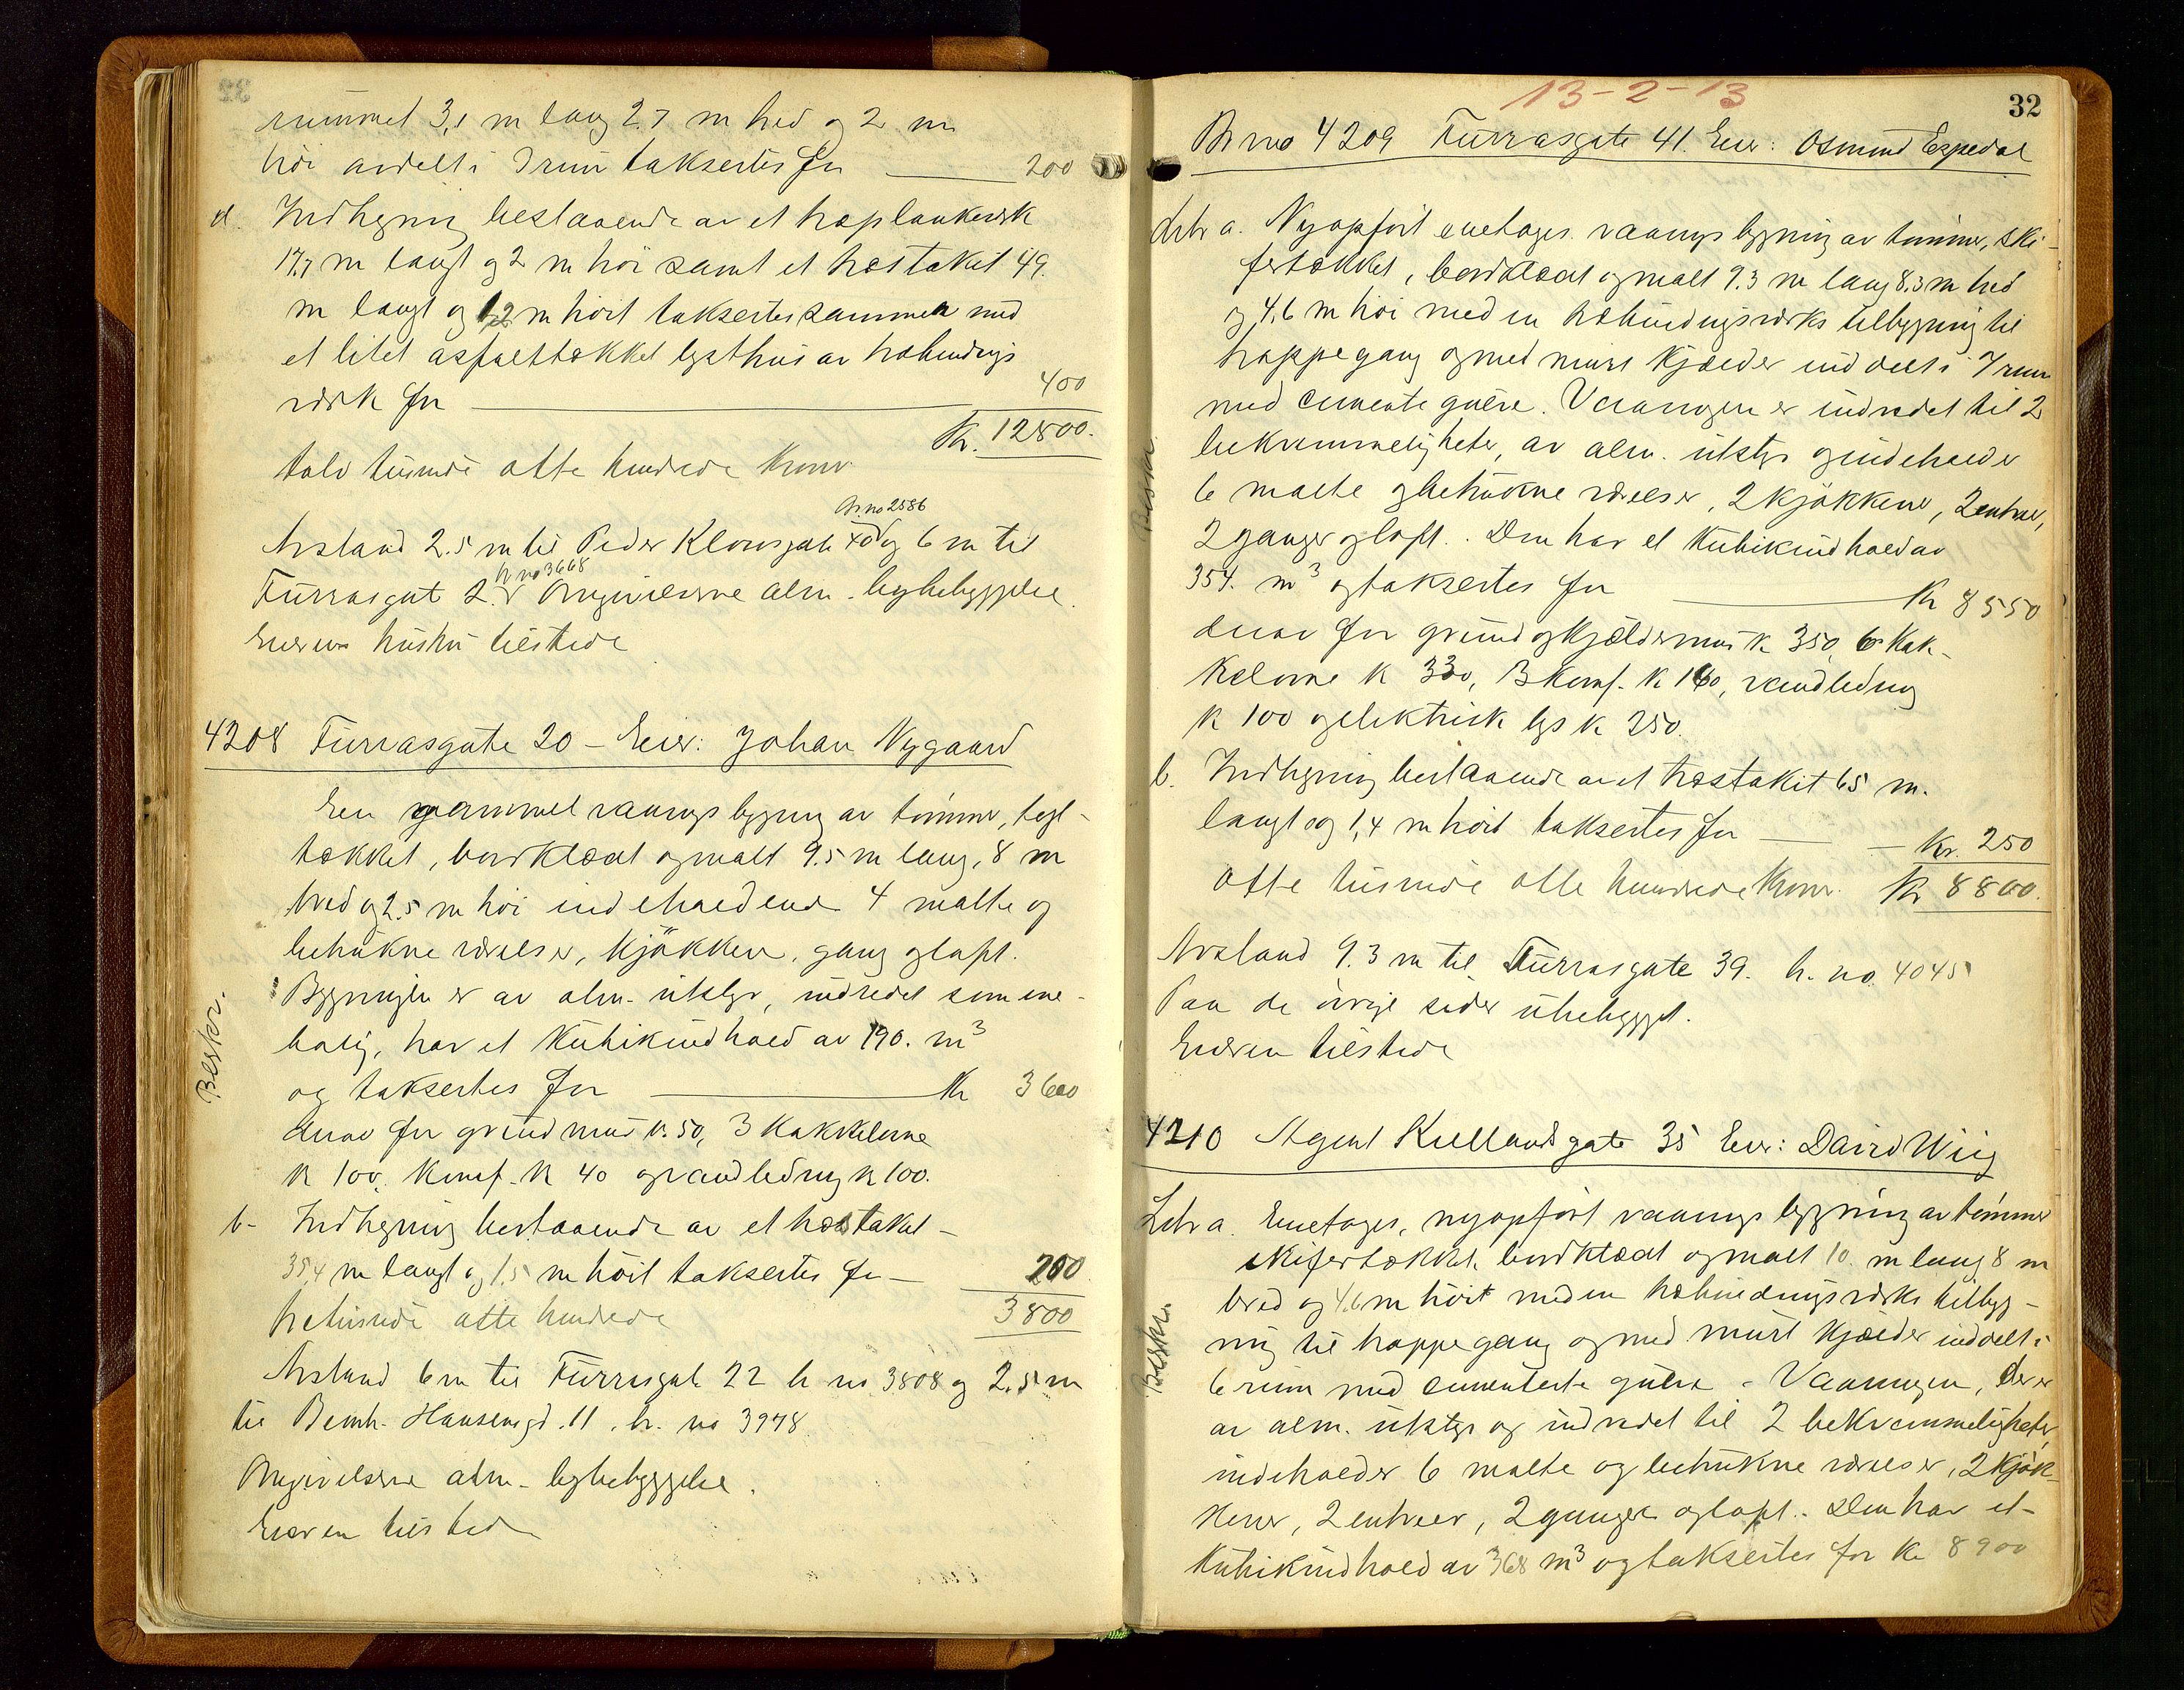 rummet 3,1 m lang 2.7 m bred og 2 m
höi avdelt i 3 rum taksertes for 200
d. Indhegning bestaaende av et træplankeverk
17,7 m langt og 2 m höi samt et træstaket 49.
m langt og 1,2 m höit taksertes sammen med
et litet asfalttækket lysthus av træbindings
verk for 400
Kr. 12800.
tolv tusinde otte hundrede kroner
br.no 2586
Avstand 2.5 m til Peder Klowsgate og 6 m til
br no 3668
Furrasgate 2. Omgivelserne alm. bybebyggelse.
Eierens hustru tilstede
4208 Furrasgate 20 - Eier: Johan Nygaard
En gammel vaanings bygning av tömmer, tegl-
tækket, bordklædt og malt 9.5 m lang, 8 m
bred og 2.5 m höi indeholdende 4 malte og
betrukne værelser, kjökken, gang og loft.
Bygningen er av alm. utstyr, indredet som ene-
bolig, har et kubikindhold av 190. m³
og taksertes for Kr 3600
derav for grundmur k. 50, 3 kakkelovne
k 100, komf. k 40 og vandledning k 100.
b- Indhegning bestaaende av et træstaket -
35,4 m langt og 1,5 m höit taksertes for - 200
3800
tretusinde otte hundrede
Avstand 6 m til Furrasgate 22 br no 3808 og 2.5 m
til Bernh. Hansensgd. 11. br. no 3978
Omgivelserne alm. bybebyggelse.
Eieren tilstede
Beskr.
13-2-13
32
Br no 4209 Furrasgate 41. Eier: Osmund Espedal
Litr a. Nyopfört enetages vaanings bygning av tömmer, ski-
fertækket, bordklædt og malt 9.3 m lang 8.3 m bred
og 4,6 m höi med en træbindingsverks tilbygning til
trappegang og med muret kjælder inddelt i 7 rum
med cemente gulve. Vaaningen er indredet til 2
bekvemmeligheter, av alm. utstyr og indeholder
6 malte og betrukne værelser, 2 kjökkener, 2 entreer,
2 ganger og loft. Den har et kubikindhold av
354. m³ og taksertes for Kr 8550
derav for grund og kjældermur k 350, 6 kak-
kelovne k 330, 3 komf. k 160, vandledning
k 100 og elektrisk lys k 250.
b. Indhegning bestaaende av et træstakit 65 m.
langt og 1,4 m höit taksertes for - Kr. 250
Otte tusinde otte hundrede kroner. Kr 8800.
Avstand 9.3 m til Furrasgate 39. br. no. 4045
Paa de övrige sider ubebygget.
Eieren tilstede
Beskr.
4210 Agent Kiellands gate 35 Eier: David Wiig
Litr a. Enetages, nyopfört vaanings bygning av tömmer
skifertækket, bordklædt og malt 10 m lang 8 m
bred og 4.6 m höit med en træbindingsverks tilbyg-
ning til trappegang og med muret kjælder inddelt i
6 rum med cementerte gulve - Vaaningen, der er
av alm. utstyr og indredet til 2 bekvemmeligheter,
indeholder 6 malte og betrukne værelser, 2 kjök-
kener, 2 entreer, 2 ganger og loft. Den har et -
kubikindhold av 368 m³ og taksertes for Kr 8900
Beskr.